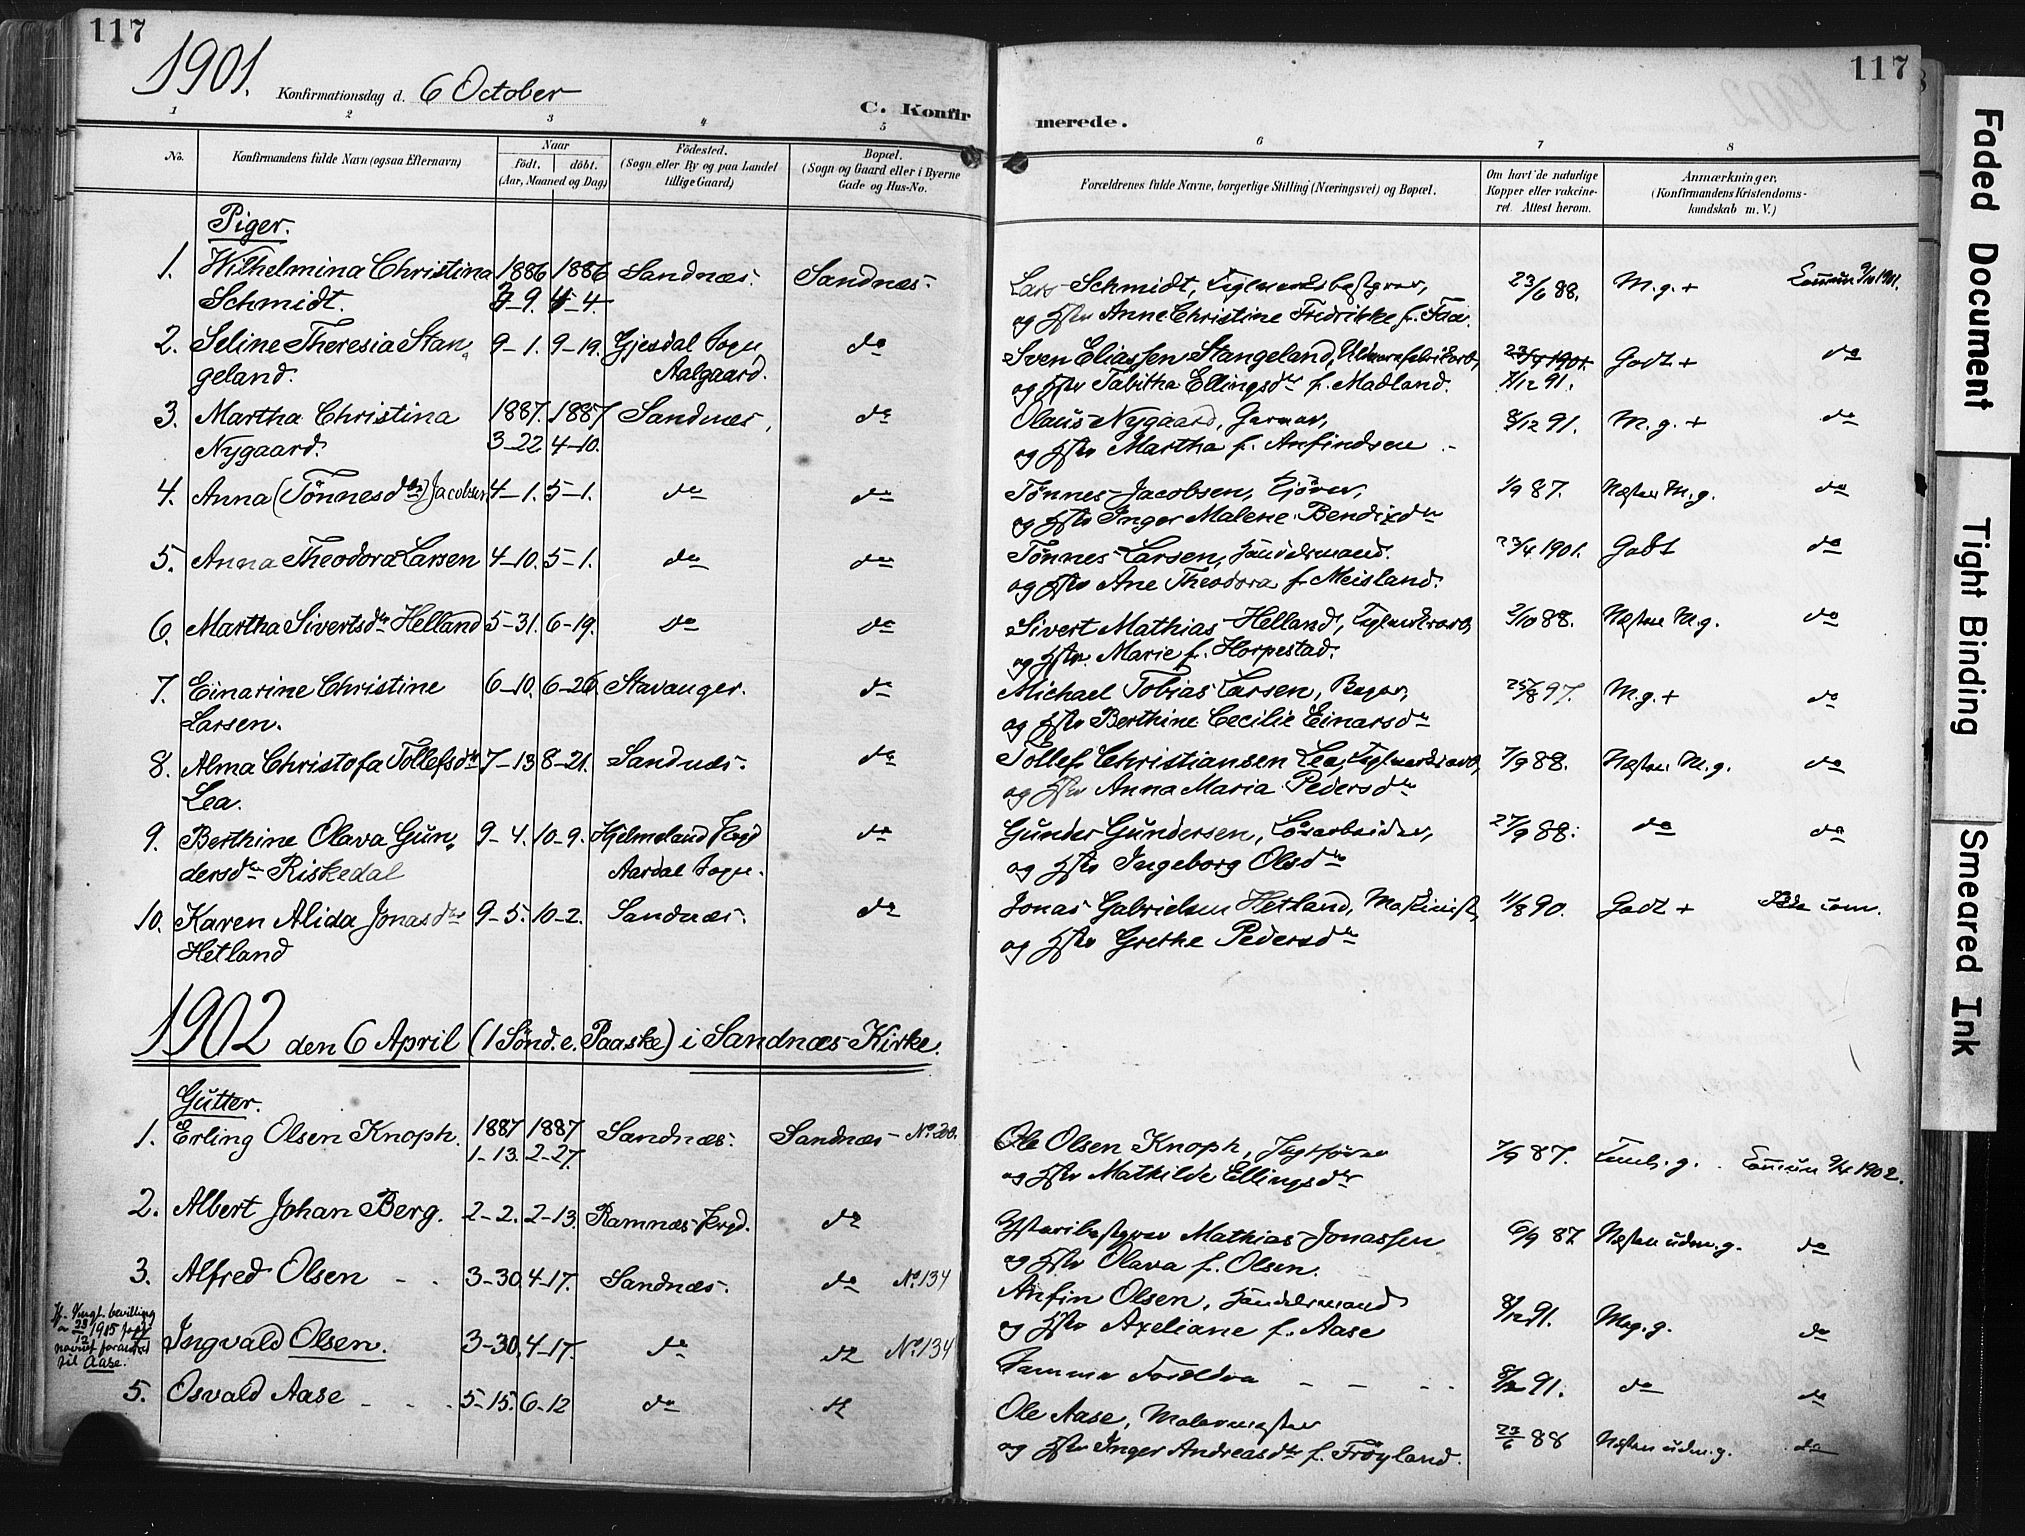 117
117
1901.
Konfirmationsdag d. 6 October
C. Konfirmerede.
1 2 3 4 5 6 7 8
No.
Konfirmandens fulde Navn (ogsaa Efternavn)
Naar
födt. döbt.
(Aar, Maaned og Dag)
Födested.
(Sogn eller By og paa Landet
tillige Gaard)
Bopæl.
(Sogn og Gaard eller i Byerne
Gade og Hus-No.
Forældrenes fulde Navne, borgerlige Stilling (Næringsvei) og Bopæl.
Om havt de naturlige
Kopper eller vakcine-
ret. Attest herom.
Anmærkninger,
(Konfirmandens Kristendoms-
kundskab m. V.)
Piger.
1. Wilhelmina Christina 1886 1886 Sandnæs. Sandnæs. Lars Schmidt, 23/6 88. M.g.+
Schmidt. 9. 4. og Hstr Anne Christine Fredrikke f.
2. Seline Theresia Stan- 9-1. 9-19. Gjesdal Sogn do Sven Eliassen Stangeland, 23/4 1901. Godt + do
geland. Aalgaard. og Hstr Tabitha Ellingsdr f. Madland. 7/12 91.
3. Martha Christina 1887. 1887 Sandnæs, do Olaus Nygaard, Garver, 8/12 91. M.g.+ do
Nygaard. 3-22. 4-10. og Hstr Martha f. Anfindsen
4. Anna (Tönnesdtr) Jacobsen 4-1. 5-1. do do Tönnes Jacobsen, 1/9 87. Næsten M.g. do
og Hstr Inger Malene Bendixdtr
5. Anna Theodora Larsen 4-10. 5-1. do do Tönnes Larsen, Handelsmand. 23/4 1901. Godt do
og Hstr Ane Theodora f. Meisland.
6. Martha Sivertsdr Helland 5-31. 6-19. do do Sivert Mathias Helland, 2/10 88. Næsten M.g. do
og Hstr. Marie f. Horpestad.
7. Einarine Christine 6-10. 6-26. Stavanger. do Michael Tobias Larsen, Bager, 25/8 97. M.g.+ do
Larsen. og Hstr Berthine Cecilie Einarsdtr
8. Alma Christofa Tollefsdtr 7-13 8-21. Sandnæs. do Tollef Christiansen Lea, 7/9 88. Næsten M.g. do
Lea. og Hstr Anna Maria Pedersdtr
9. Berthine Olava Gun- 9-4. 10-9. Hjelmeland Prgd do Gunder Gundersen, Lösarbeider, 27/9 88. do do
dersdtr Riskedal Aardal Sogn. og Hstr Ingeborg Olsdtr
10. Karen Alida Jonasdtr 9-5. 10-2. Sandnæs. do Jonas Gabrielsen Hetland, Maskinist, 11/8 90. Godt +
Hetland og Hstr Grethe Pedersdtr
1902 den 6 April (1 Sönd. e. Paaske) i Sandnæs Kirke.
Gutter.
1. Erling Olsen Knoph. 1887 1887 Sandnæs. Sandnæs No. 200. Ole Olsen Knoph, 7/9 87.
1-13. 2-27. og Hstr Mathilde Ellingsdtr
2. Albert Johan Berg. 2-2. 2-13. Ramnæs Prgd. do Mathias Jonassen 6/9 87 Næsten udm.g. do
og Hstr Olava f. Olsen.
3. Alfred Olsen - - 3-30. 4-17. Sandnæs. do No 134 Anfin Olsen, Handelsmand 8/12 91. Meg. g. do
og Hstr Axeliane f. Aase
bevilling
1915
navnet forandret
til Aase.
Ingvald Olsen. 3-30. 4-17. do do No 134 Samme Forældre - - - 8/12 91. do do
5. Osvald Aase - - - 5-15. 6-12 do do Ole Aase, Malermester 23/6 88 Næsten udm.g. do
og Hstr Inger Andreasdtr f. Fröyland.
Faded Document
Tight Binding
Smeared Ink